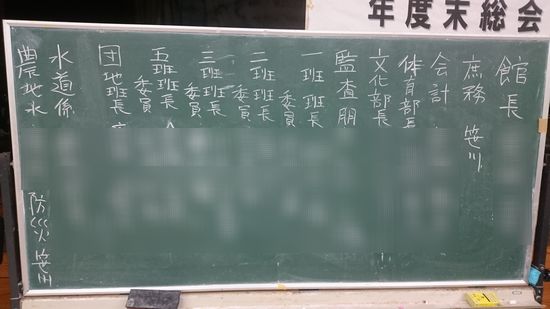 年度末総会
館長
庶務 笹川
会計
体育部長
文化部長
監査朋
一班 班長
委員
二班 班長
委員
三班 班長
委員
五班 班長
委員
団地班長
水道係
農地水
防災 笹川